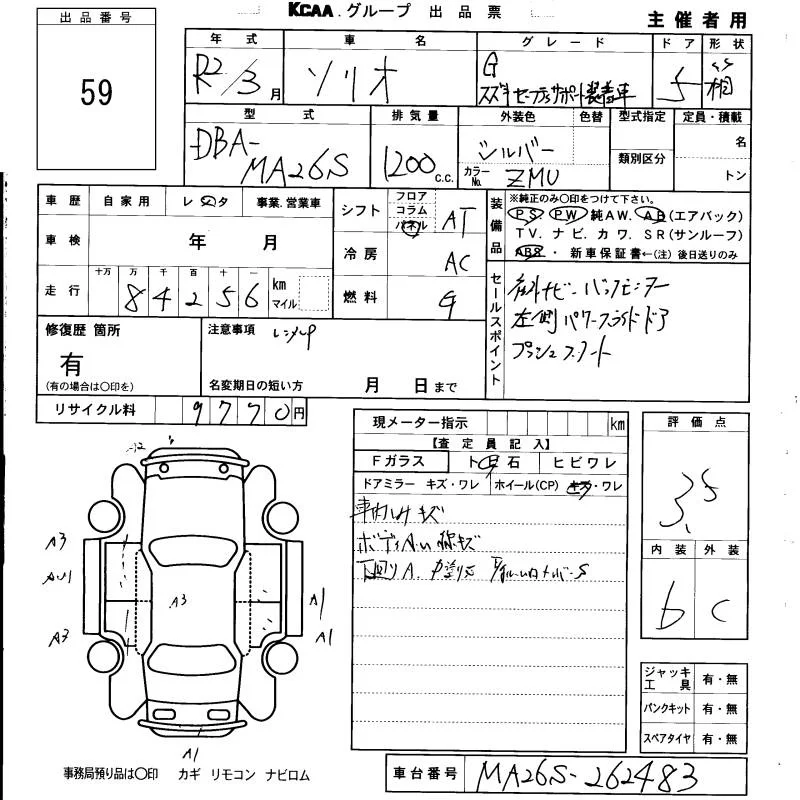 KCAA グループ 出品票
主催者用
出品番号
59
年式 車名 グレード ドア 形状
R2/3月 ソリオ G 5 5D箱
スズキセーフティサポート装着車
型式 排気量 外装色 色替 型式指定 定員・積載
DBA- シルバー 名
MA26S 1200 c.c. カラーNo. ZMU 類別区分 トン
車歴 自家用 レンタ 事業.営業車
シフト フロア コラム パネル AT
装備品 ※純正のみ〇印をつけて下さい。
PS PW 純AW. AB(エアバック)
TV. ナビ. カワ. SR(サンルーフ)
ABS ・ 新車保証書←(注) 後日送りのみ
車検 年 月
冷房 AC
走行 十万 万 千 百 十 一
84256 km マイル
燃料 G
セールスポイント
社外ナビ バックモニター
左側パワースライドドア
プッシュスタート
修復歴 箇所
有
(有の場合は〇印を)
注意事項 レンタUP
名変期日の短い方 月 日まで
リサイクル料 9770円
現メーター指示 km
【査定員記入】
Fガラス ト石 ヒビワレ
ドアミラー キズ・ワレ ホイール(CP) キズ・ワレ
車内 キズ
ボディ キズ
下回り
評価点
3.5
内装 外装
b C
A3
AU1
A3
A3
A1
A1
A1
ジャッキ工具 有・無
パンクキット 有・無
スペアタイヤ 有・無
事務局預り品は〇印 カギ リモコン ナビロム
車台番号 MA26S-262483